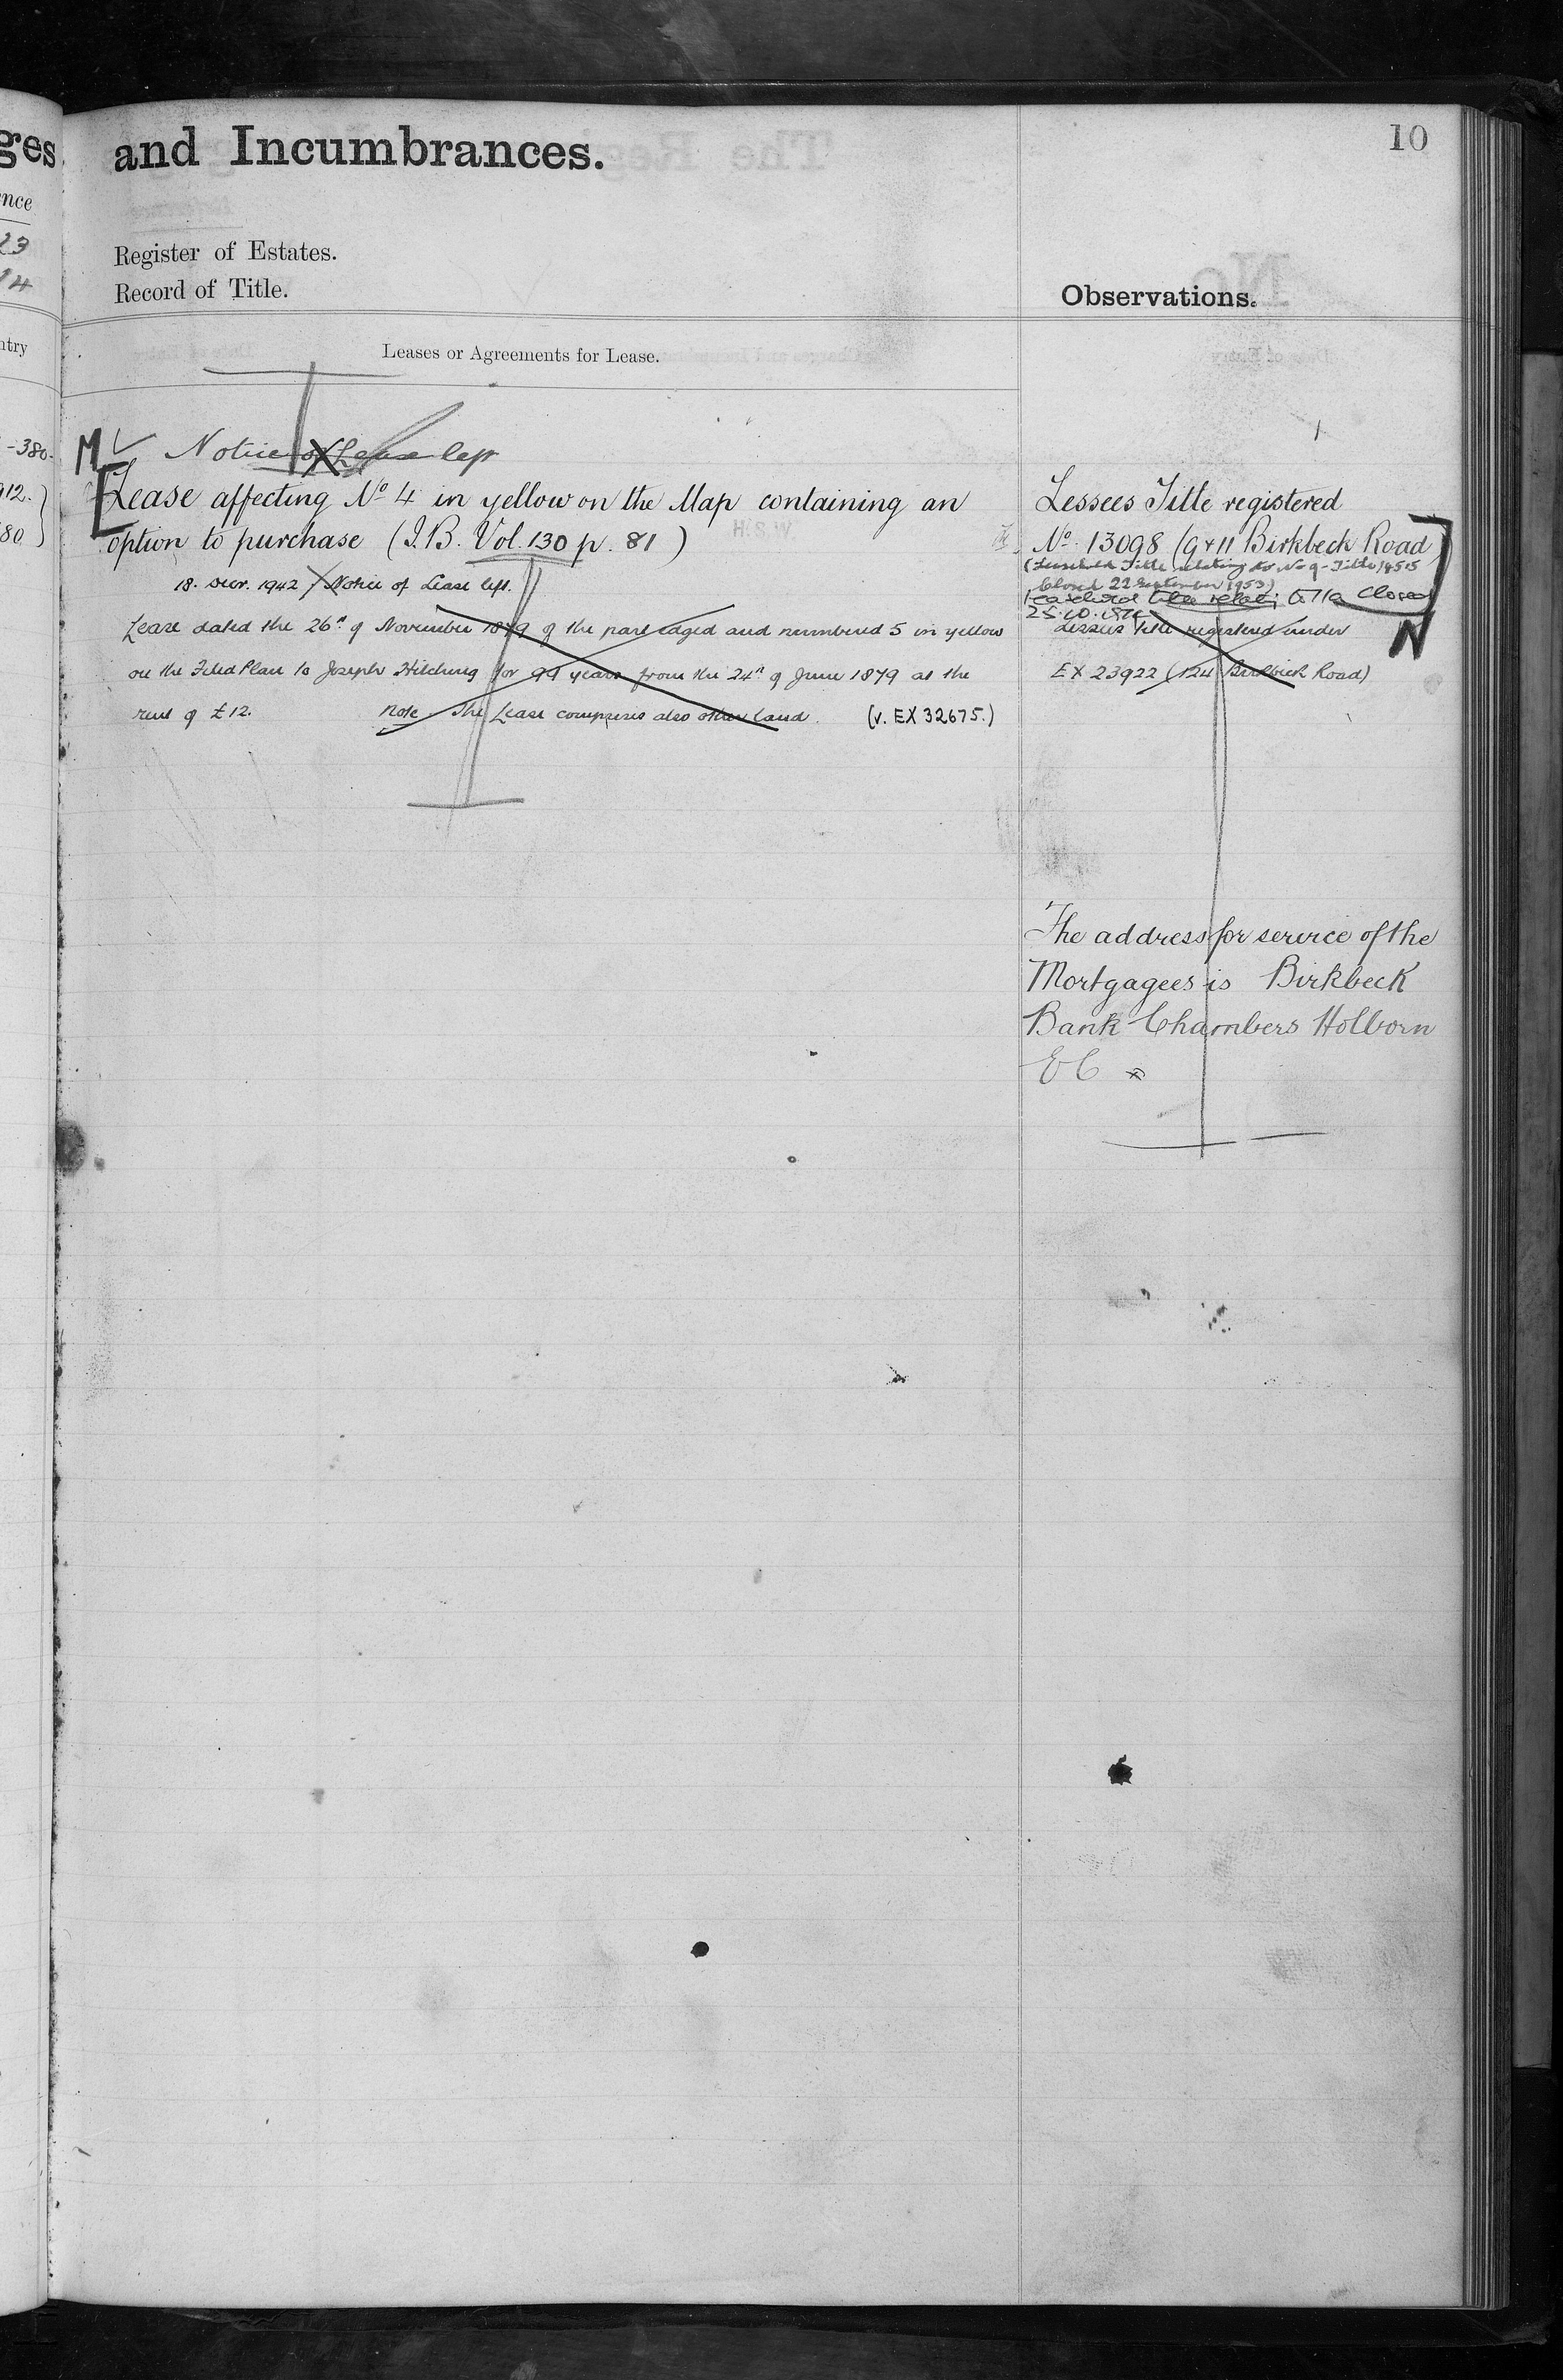 ges
and Incumbrances.
10
nce
23
14
Register of Estates.
Record of Title.
Observations.
ntry
Leases or Agreements for Lease.
-380.
M
Notice of Lease left
Lease affecting No 4 in yellow on the Map containing an
option to purchase (I.B. Vol. 130 p. 81)
912.
80
18. 1942 Notice of Lease left.
Lease dated the 26th of November 1879 of the part edged and numbered 5 in yellow
on the Filed Plan to Joseph Hitching for 99 years from the 24th of June 1879 at the
rent of £12. Note The Lease comprises also other land. (v. EX 32675.)
Lessees Title registered
No. 13098 (9 & 11 Birkbeck Road)
(Leasehold Title relating to No 9 - Title 18515
Closed 22 September 1953)
Leasehold title Closed
N
Lessees Title registered under
EX 23922 (124 Birkbeck Road)
The address for service of the
Mortgagees is Birkbeck
Bank Chambers Holborn
EC